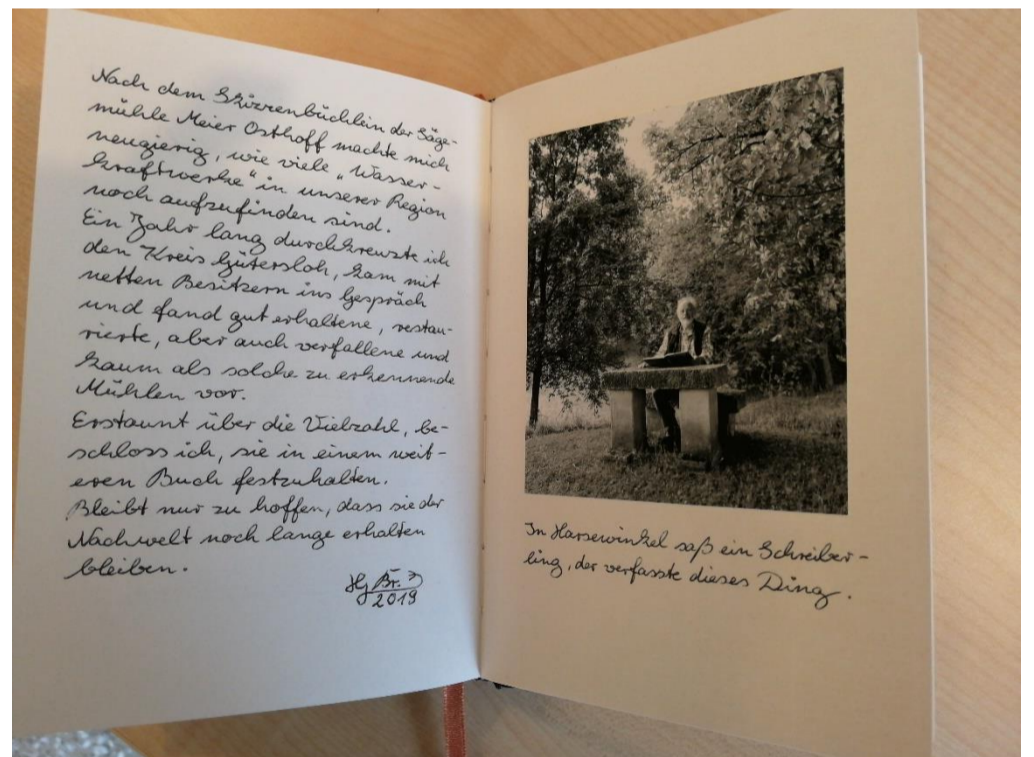 Nach dem Skizzenbüchlein der Säge-
mühle Meier Osthoff machte mich
neugierig, wie viele „Wasser-
kraftwerke" in unserer Region
noch aufzufinden sind.
Ein Jahr lang durchkreuzte ich
den Kreis Gütersloh, kam mit
netten Besitzern ins Gespräch
und fand gut erhaltene, restau-
rierte, aber auch verfallene und
kaum als solche zu erkennende
Mühlen vor.
Erstaunt über die Vielzahl, be-
schloss ich, sie in einem weit-
eren Buch festzuhalten.
Bleibt nur zu hoffen, dass sie der
Nachwelt noch lange erhalten
bleiben.
2019
In Harsewinkel saß ein Schreiber-
ling, der verfasste dieses Ding.